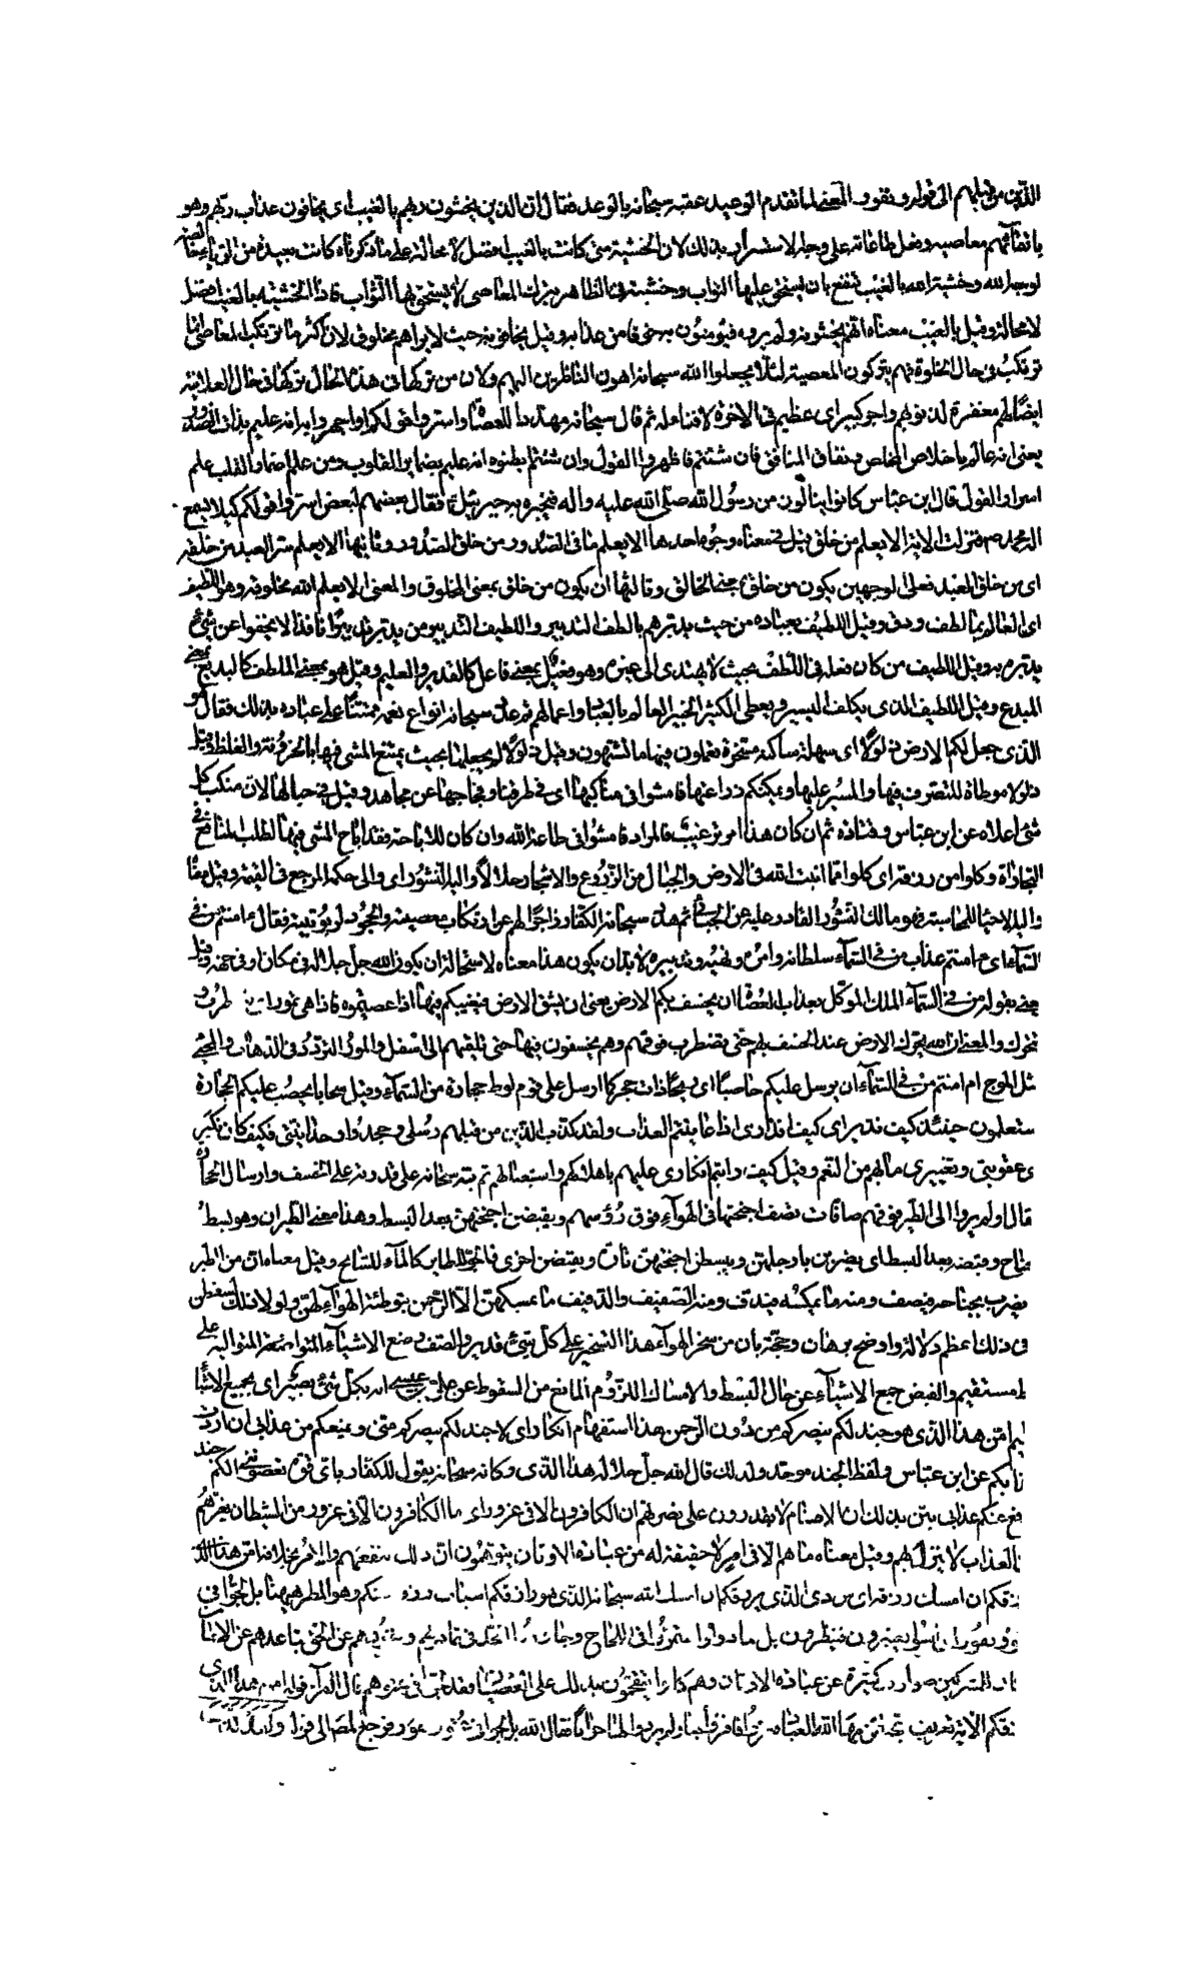 الذين من قبلهم الى قوله ونفور المعنى لما تقدم الوعيد عقبه سبحانه بالوعد فقال ان الذين يخشون ربهم بالغيب اى يخافون عذاب ربهم وهو
باتقائهم معاصيه وفعل طاعاته على وجه الاستسرار بذلك لان الخشية متى كانت بالغيب افضل لا محالة على ما ذكرناه كانت بعيدة من
لوجه الله وخشية الله بالغيب تنفع بان يستحق عليها الثواب وخشيته فى الظاهر بترك المعاصى لا يستحق بها الثواب فاذا الخشية بالغيب افضل
لا محالة وقيل بالغيب معناه انهم يخشونه ولم يروه فيؤمنون به خوفا من عذابه وقيل يخافونه حيث لا يراهم مخلوق لان اكثر ما ترتكب المعاصى انما
ترتكب فى حال الخلوة فهم يتركون المعصية لئلا يجعلوا الله سبحانه اهون الناظرين اليهم ولان من تركها فى هذا الحال تركها فى حال العلانية
ايضا لهم مغفرة لذنوبهم واجر كبير اى عظيم فى الآخرة لا فناء له ثم قال سبحانه مهددا للعصاة واسروا قولكم او اجهروا به انه عليم بذات الصدور
يعنى انه عالم باخلاص المخلص ونفاق المنافق فان شئتم فاظهروا القول وان شئتم ابطنوه انه عليم بضماير القلوب ومن علم اضمار القلب علم
اسرار القول قال ابن عباس كانوا ينالون من رسول الله صلى الله عليه وآله فيخبره به جبرئيل فقال بعضهم لبعض اسروا قولكم كيلا يسمع
اله محمد ص فنزلت الآية الا يعلم من خلق قيل فى معناه وجوه احدها الا يعلم ما فى الصدور من خلق الصدور وثانيها الا يعلم سر العبد من خلقه
اى من خلق العبد فعلى الوجهين يكون من خلق بمعنى الخالق وثالثها ان يكون من خلق بمعنى المخلوق والمعنى الا يعلم الله مخلوقه وهو اللطيف
اى العالم بما لطف ودق وقيل اللطيف بعباده من حيث يدبرهم بالطف التدبير واللطيف التدبير من يدبر تدبيرا نافذا لا يجفوا عن شئ
يدبره به وقيل اللطيف من كان فعله فى اللطف بحيث لا يهتدى الى غيره وهو فعيل بمعنى فاعل كالقدير والعليم وقيل هو بمعنى الملطف كالبديع بمعنى
المبدع وقيل اللطيف الذى يكلف اليسير ويعطى الكثير الخبير العالم بالعباد واعمالهم ثم عدد سبحانه انواع نعمه ممتنا على عباده بذلك فقال هو
الذى جعل لكم الارض ذلولا اى سهلة ساكنة مسخرة تعملون فيها ما تشتهون وقيل ذلولا لم يجعلها بحيث يمتنع المشى فيها بالحزونة والغلظ وقيل
ذلولا موطاة للتصرف فيها والمسير عليها ويمكنكم زراعتها فامشوا فى مناكبها اى فى طرقها وفجاجها عن مجاهد وقيل فى جبالها لان منكب كل
شئ اعلاه عن ابن عباس وقتادة ثم ان كان هذا امر ترغيب فالمراد فامشوا فى طاعة الله وان كان للاباحة فقد اباح المشى فيها لطلب المنافع فى
التجارة وكلوا من رزقه اى كلوا مما انبت الله فى الارض والجبال من الزروع والاشجار حلالا واليه النشور اى والى حكمه المرجع فى القيمة وقيل معناه
واليه الاحياء للمحاسبة فهو مالك النشور القادر عليه عن الجبائى ثم هدد سبحانه الكفار زاجرا لهم عن ارتكاب معصيته والجحود لربوبيته فقال ءامنتم من فى
السماء اى امنتم عذاب من فى السماء سلطانه وامره ونهيه وتدبيره لا بد ان يكون هذا معناه لاستحالة ان يكون الله جل جلاله فى مكان او فى جهة وقيل
يعنى بقوله من فى السماء الملك الموكل بعذاب العصاة ان يخسف بكم الارض يعنى ان يشق الارض فيغيبكم فيها اذا عصيتموه فاذا هى تمور
تتحرك والمعنى ان الله يحرك الارض عند الخسف بهم حتى تضطرب فوقهم وهم يخسفون فيها حتى تلقيهم الى اسفل والمور التردد فى الذهاب والمجئ
مثل الموج ام امنتم من فى السماء ان يرسل عليكم حاصبا اى ريحا ذات حجر كما ارسل على قوم لوط حجارة من السماء وقيل سحابا يحصب عليكم الحجارة
ستعلمون حينئذ كيف نذير اى كيف انذارى اذا عاينتم العذاب ولقد كذب الذين من قبلهم رسلى وجحدوا وحدانيتى فكيف كان نكير
اى عقوبتى وتغييرى ما بهم من النعم وقيل كيف رايتم انكارى عليهم باهلاكهم واستيصالهم ثم نبه سبحانه على قدرته على الخسف وارسال الحجارة
فقال اولم يروا الى الطير فوقهم صافات تصف اجنحتها فى الهواء فوق رؤسهم ويقبضن اجنحتهن بعد البسط وهذا معنى الطيران وهو بسط
جناح وقبضه بعد البسط اى يضربن بارجلهن ويبسطن اجنحتهن تارة ويقبضن اخرى فالجو للطاير كالماء للسابح وقيل معناه ان من الطير
يضرب بجناحه فيصف ومنه ما يمسكه فيدف ومنه الصفيف والدفيف ما يمسكهن الا الرحمن بتوطئة الهواء لهن ولولا ذلك لسقطن
فى ذلك اعظم دلالة واوضح برهان وحجة بان من سخر الهواء هذا التسخير على كل شئ قدير والصف وضع الاشياء المتوالية على
خط مستقيم والقبض جمع الاشياء عن حال البسط والامساك اللزوم المانع من السقوط عن على بن عيسى انه بكل شئ بصير اى بجميع الاشياء
عليم امن هذا الذى هو جند لكم ينصركم من دون الرحمن هذا استفهام انكار اى لا جند لكم ينصركم منى ويمنعكم من عذابى ان اردت
عذابكم عن ابن عباس ولفظ الجند موحد ولذلك قال الله جل جلاله هذا الذى وكانه سبحانه يقول للكفار باى قوة تعصوننى الكم جند
يدفع عنكم عذابى بين بذلك ان الاصنام لا يقدرون على نصرتهم ان الكافرون الا فى غرور اى ما الكافرون الا فى غرور من الشيطان يغرهم
بان العذاب لا ينزل بهم وقيل معناه ما هم الا فى امر لا حقيقة له من عبادة الاوثان يتوهمون ان ذلك ينفعهم والامر بخلافه امن هذا الذى
يرزقكم ان امسك رزقه اى من ذى الذى يرزقكم ان امسك الله سبحانه الذى هو رازقكم اسباب رزقه عنكم وهو المطر ههنا بل لجوا فى
عتو ونفور اى ليسوا يعتبرون فينظرون بل مادوا فى اللجاج وتجاوزوا الحد فى تماديهم ونفورهم عن الحق وتباعدهم عن الايمان
كان للمشركين صوارف كثيرة عن عبادة الاوثان وهم كانوا يتقحمون بذلك على العصيان فقد لجوا فى عتوهم قال الفراء قوله امن هذا الذى
يرزقكم الآية تعريف